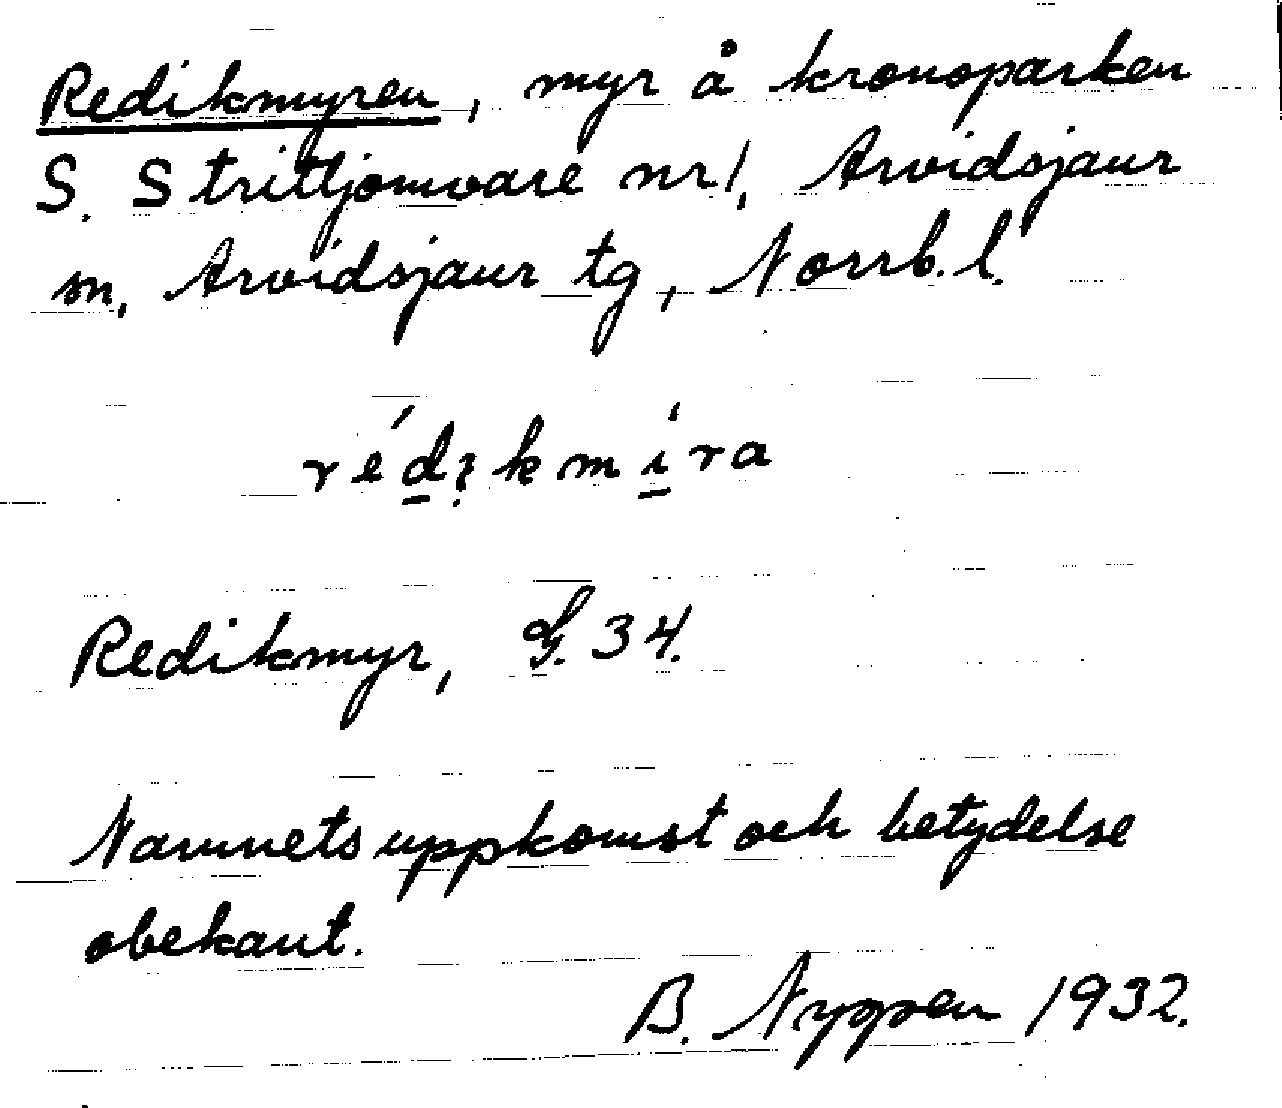 Redikmyren, myr å kronoparken
S. Stritjomvare nr 1, Arvidsjaur
sn, Arvidsjaur tg, Norrb. l.
Redikmyr, G. 34.
Namnets uppkomst och betydelse
obekant.
B. Nyppen 1932.